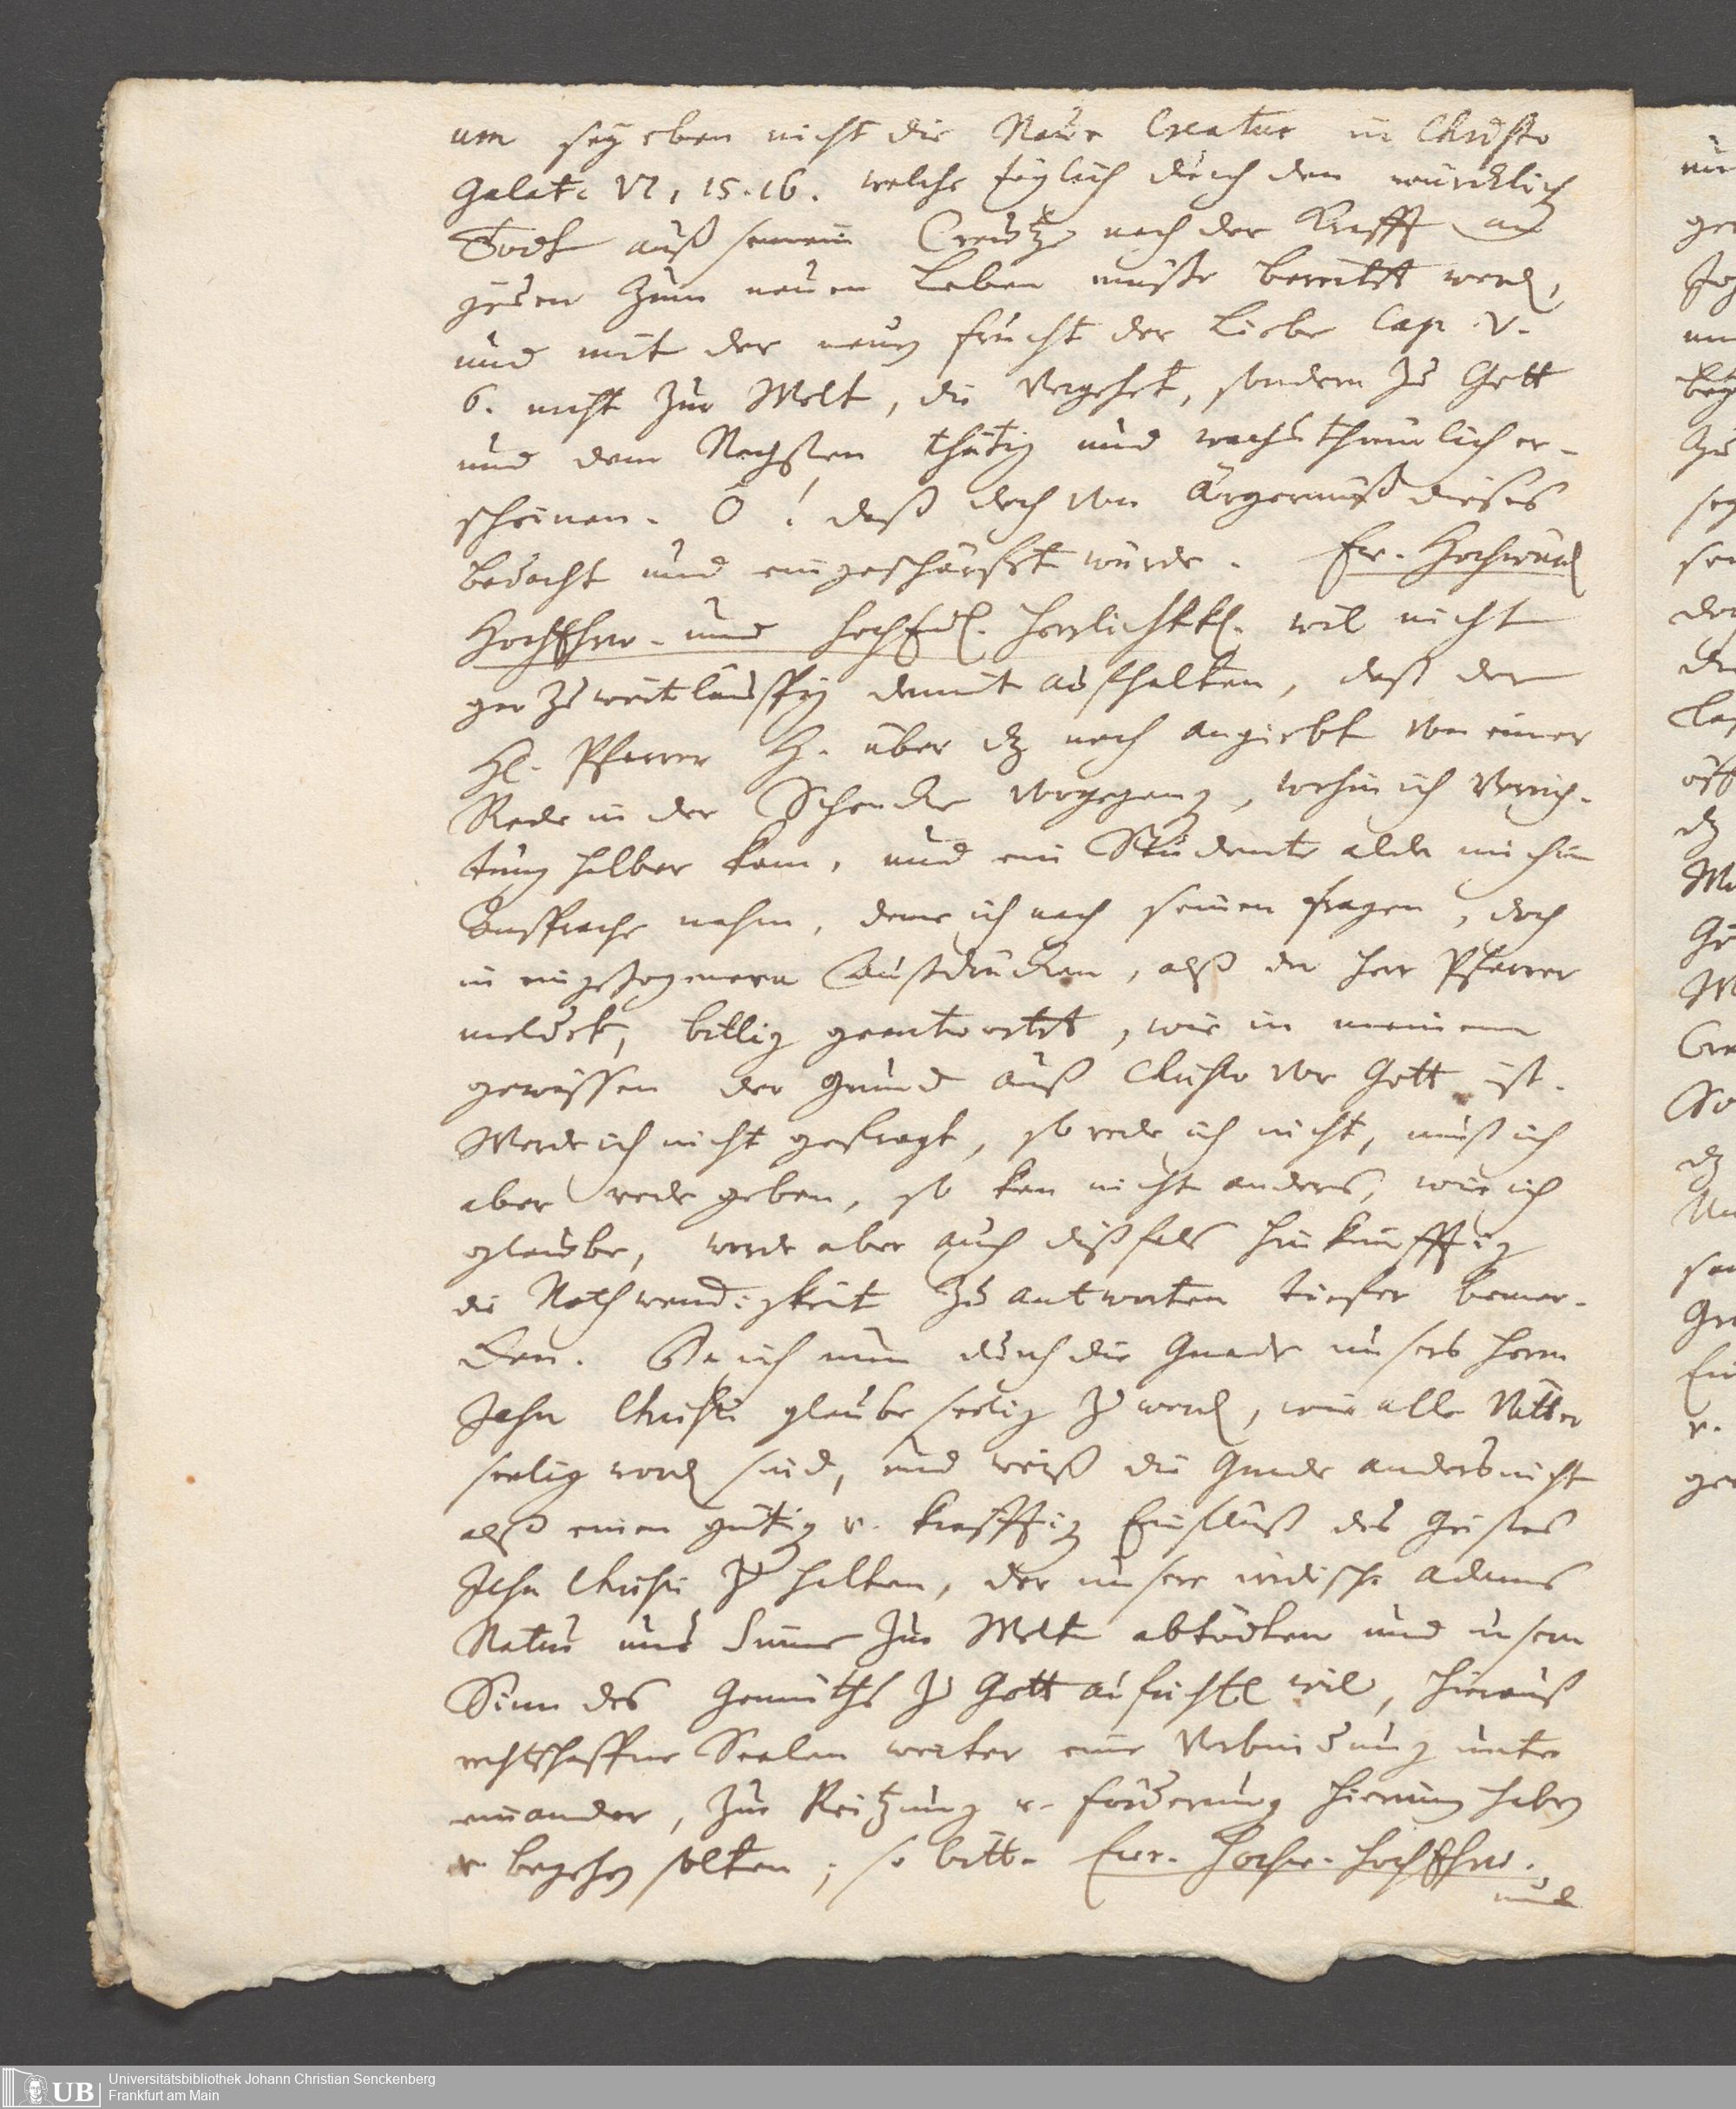 um sey eben nicht die Neue Creatur in Christo
Galat. VI, 15. 16. welche täglich durch den würcklich
Todt auß seinem Creutze nach der Krafft an
zum neuen Leben müste bereitet werden,
und mit der neuen frucht der Liebe Cap. V.
6. nicht zur Welt, die vergehet, sondern zu Gott
und dem Nechsten thätig und wachsthümlich er-
scheinen. O! daß doch von Ärgernüß dieses
bedacht und eingeschärffet würde. Ew. Hochwürd
HochEhrw. und HochEdl. Herrlichkt. wil nicht
gar zu weitläufftig damit aufhalten, daß der
Hl. Pfarrer H. über dz noch angiebt von einer
Rede in der Schencke vorgegangen, wohin ich Verrich-
tung halber kam, und ein Studente alda mich in
Ansprache nahm, deme ich nach seinen fragen, doch
in eingezogenern Außdrücken, alß der Herr Pfarrer
meldet, billig geantwortet, wie in meinem
gewissen der Grund auß Christo vor Gott ist.
Werde ich nicht gefragt, so rede ich nicht, muß ich
aber rede geben, so kan nicht anders, wie ich
glaube, werde aber auch dißfals hinkünfftig
die Nothwendigkeit zu antworten tieffer bemer-
cken. Da ich nun durch die Gnade unsers Herrn
Jesu Christi glaube seelig zu werden, wie alle Vätter
seelig worden sind, und weiß die Gnade anders nicht
alß einen gütig u. kräfftig Einfluß des Geistes
Jesu Christi zu halten, der unsere irdische Adams
Natur und Sinne zur Welt abtödten und unsern
Sinn des Gemüths zu Gott aufrichten wil, hierauß
rechtschaffne Seelen weiter eine Verbindung unter
einander, zur Reitzung u. forderung hierinn haben
u. begehen solten; so bitt. Ew. Hochw. HochEhrw.
und
Universitätsbibliothek Johann Christian Senckenberg
Frankfurt am Main
UB